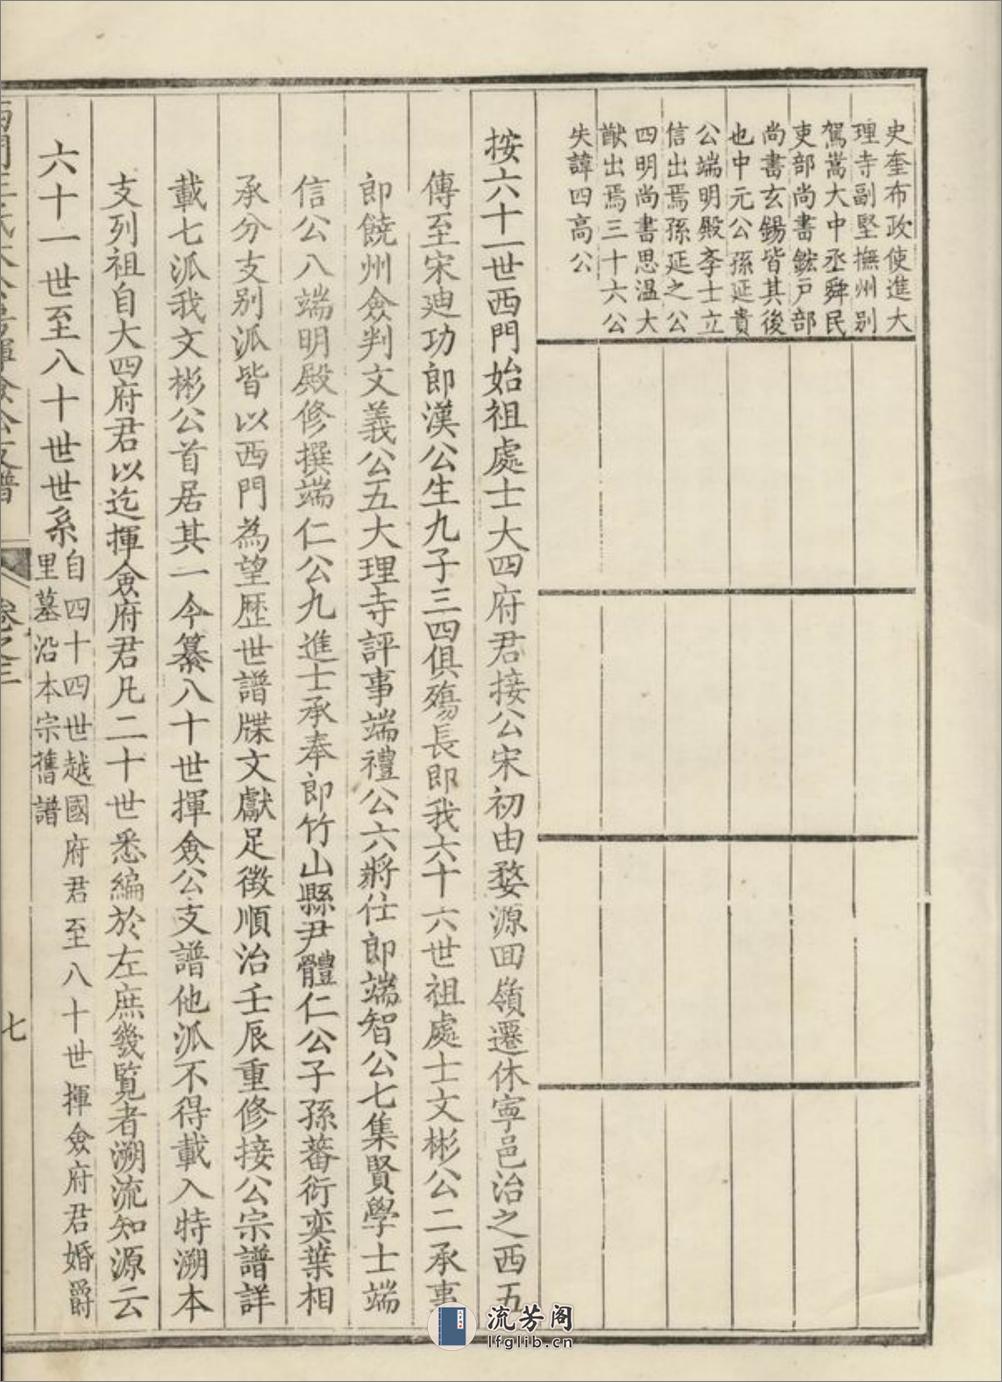 史奎布政使進大
理寺副堅撫州别
駕嵩大中丞舜民
吏部尚書鋐戸部
尚書玄錫皆其後
也中元公孫延貴
公端明殿李士立
信出焉孫延之公
四明尚書思溫大
猷出焉三十六公
失諱四高公
按六十一世西門始祖處士大四府君接公宋初由婺源回嶺遷休寧邑治之西五
傳至宋廸功郎漢公生九子三四俱殤長即我六十六世祖處士文彬公二承事
郎饒州僉判文義公五大理寺評事端禮公六將仕郎端智公七集賢學士端
信公八端明殿修撰端仁公九進士承奉郎竹山縣尹體仁公子孫蕃衍奕葉相
承分支别派皆以西門為望歷世譜牒文獻足徵順治壬辰重修接公宗譜詳
載七派我文彬公首居其一今纂八十世揮僉公支譜他派不得載入特溯本
支列祖自大四府君以迄揮僉府君凡二十世悉編於左庶幾覽者溯流知源云
六十一世至八十世世系
自四十四世越國府君至八十世揮僉府君婚爵
里墓沿本宗舊譜
卷之三
七
流芳阁
lfglib.cn